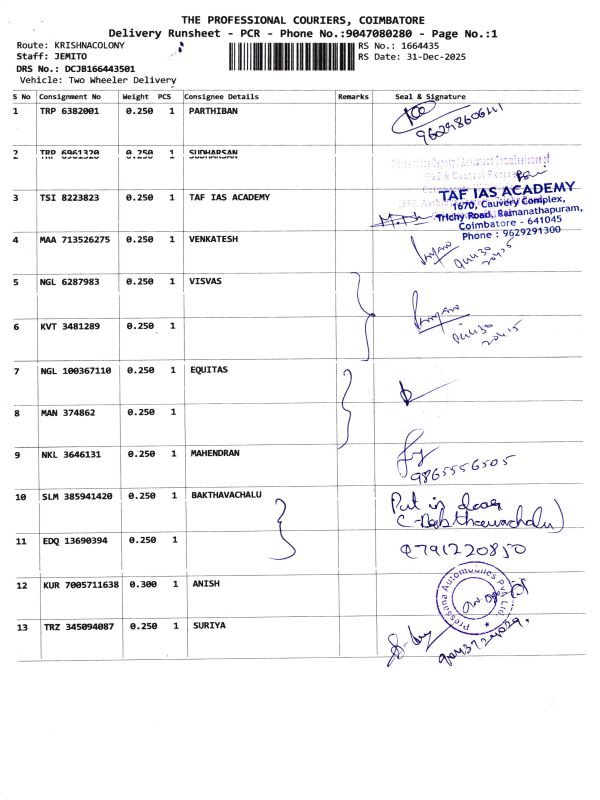 THE PROFESSIONAL COURIERS, COIMBATORE
Delivery Runsheet - PCR - Phone No.:9047080280 - Page No.:1
Route: KRISHNACOLONY
Staff: JEMITO
DRS No.: DCJB166443501
Vehicle: Two Wheeler Delivery
RS No.: 1664435
RS Date: 31-Dec-2025
S No Consignment No Weight PCS Consignee Details Remarks Seal & Signature
1 TRP 6382001 0.250 1 PARTHIBAN
2 TRP 6961320 0.250 1 SUDHARSAN
3 TSI 8223823 0.250 1 TAF IAS ACADEMY
TAF IAS ACADEMY
1670, Cauvery Complex,
Trichy Road, Ramanathapuram,
Coimbatore - 641045
Phone : 9629291300
4 MAA 713526275 0.250 1 VENKATESH
5 NGL 6287983 0.250 1 VISVAS
6 KVT 3481289 0.250 1
7 NGL 100367110 0.250 1 EQUITAS
8 MAN 374862 0.250 1
9 NKL 3646131 0.250 1 MAHENDRAN
9865556505
10 SLM 385941420 0.250 1 BAKTHAVACHALU
Put in door
11 EDQ 13690394 0.250 1
9791220850
12 KUR 7005711638 0.300 1 ANISH
Pressana Automobiles Pvt Ltd
13 TRZ 345094087 0.250 1 SURIYA